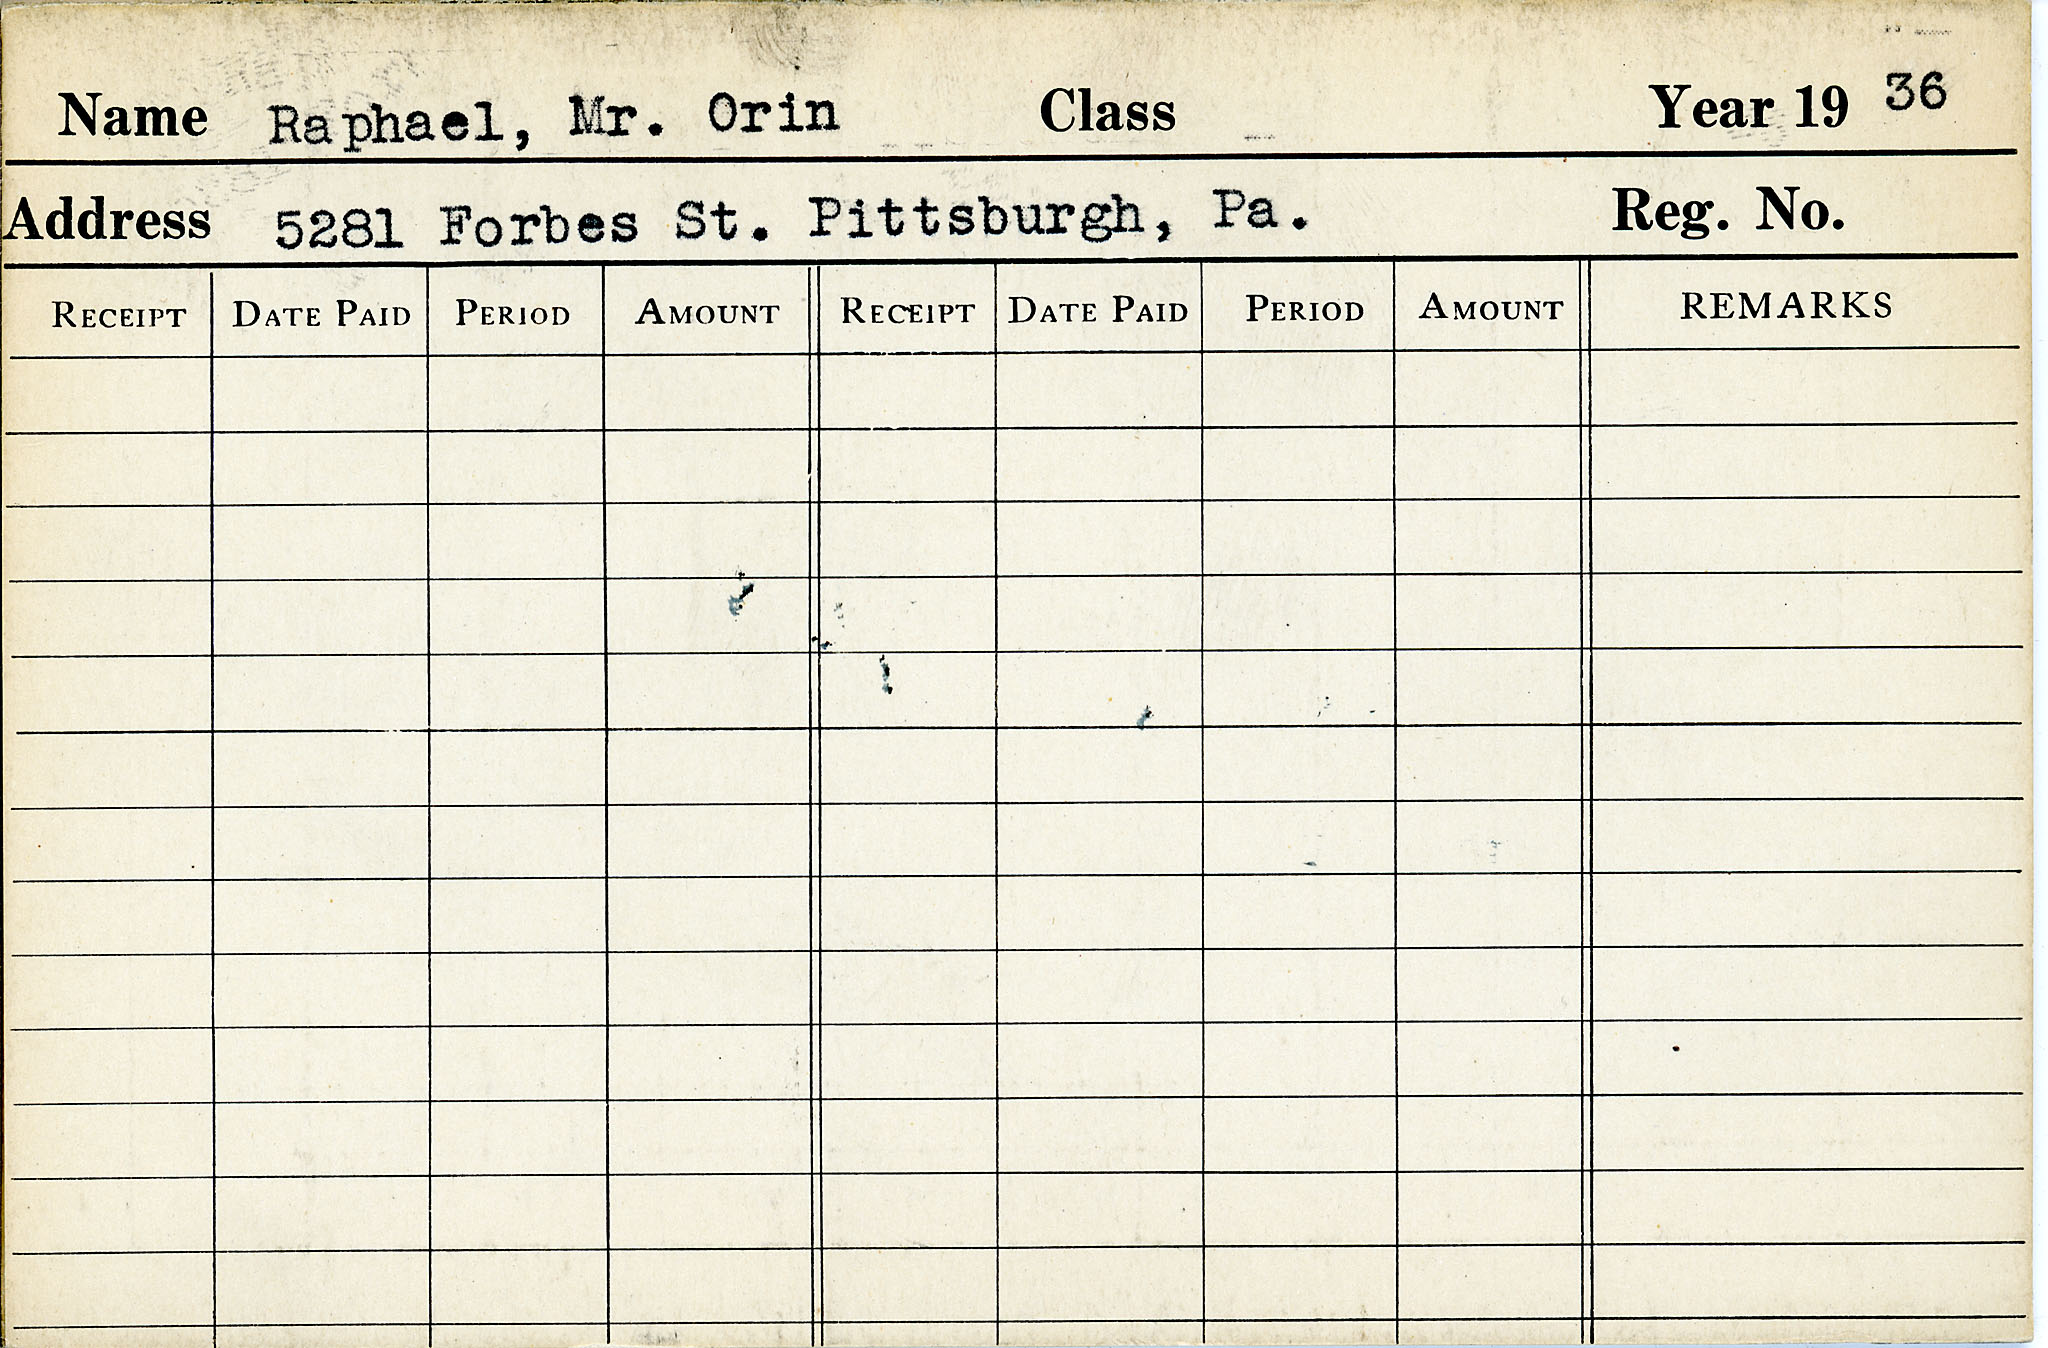 Name Raphael, Mr. Orin Class Year 19 36
Address 5281 Forbes St. Pittsburgh, Pa. Reg. No.
RECEIPT DATE PAID PERIOD AMOUNT RECEIPT DATE PAID PERIOD AMOUNT REMARKS